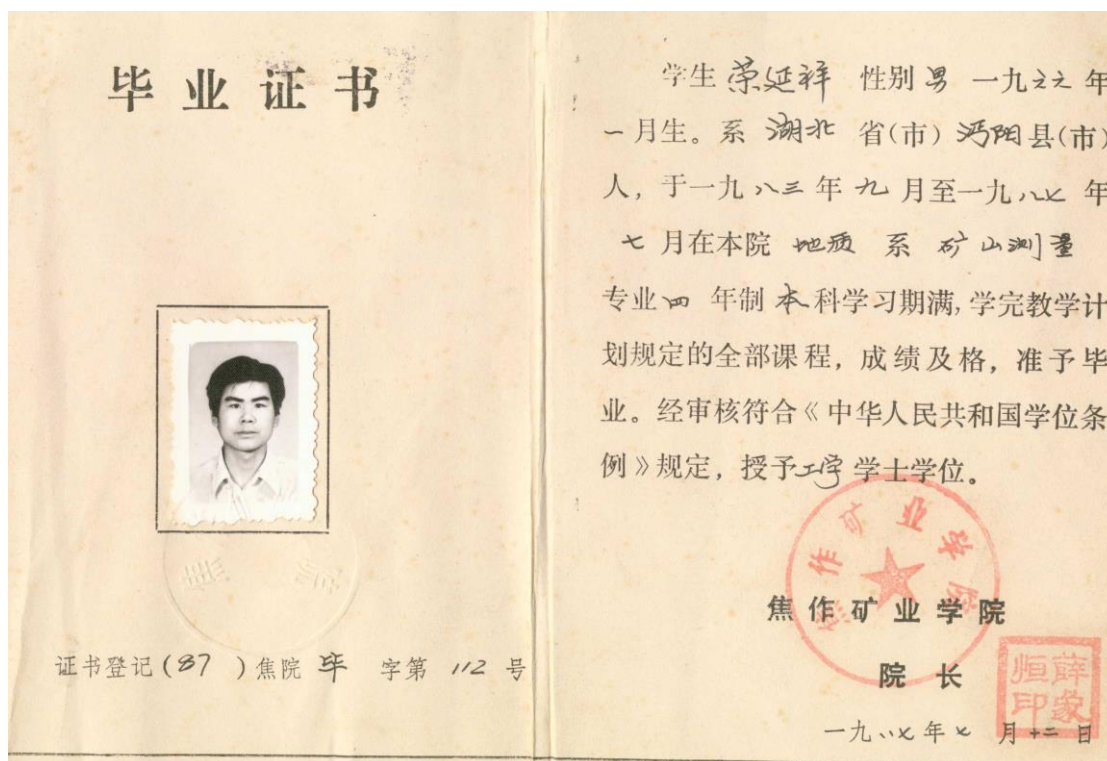 毕业证书
证书登记(87)焦院毕字第112号
学生荣延祥 性别男 一九六六年
一月生。系湖北省(市)沔阳县(市)
人，于一九八三年九月至一九八七年
七月在本院地质系矿山测量
专业四年制本科学习期满，学完教学计
划规定的全部课程，成绩及格，准予毕
业。经审核符合《中华人民共和国学位条
例》规定，授予工学学士学位。
焦作矿业学院
焦作矿业学院
院长
薛象恒印
一九八七年七月十二日